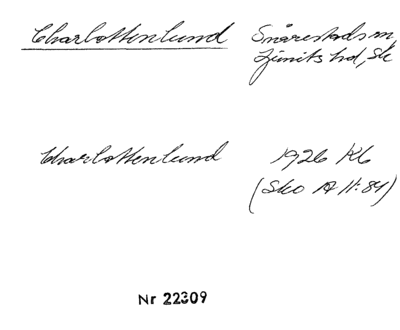 Charlottenlund Snårestads sn,
Ljunits hd, Sk
Charlottenlund 1926 Kb
(Sko A 11:84)
Nr 22309